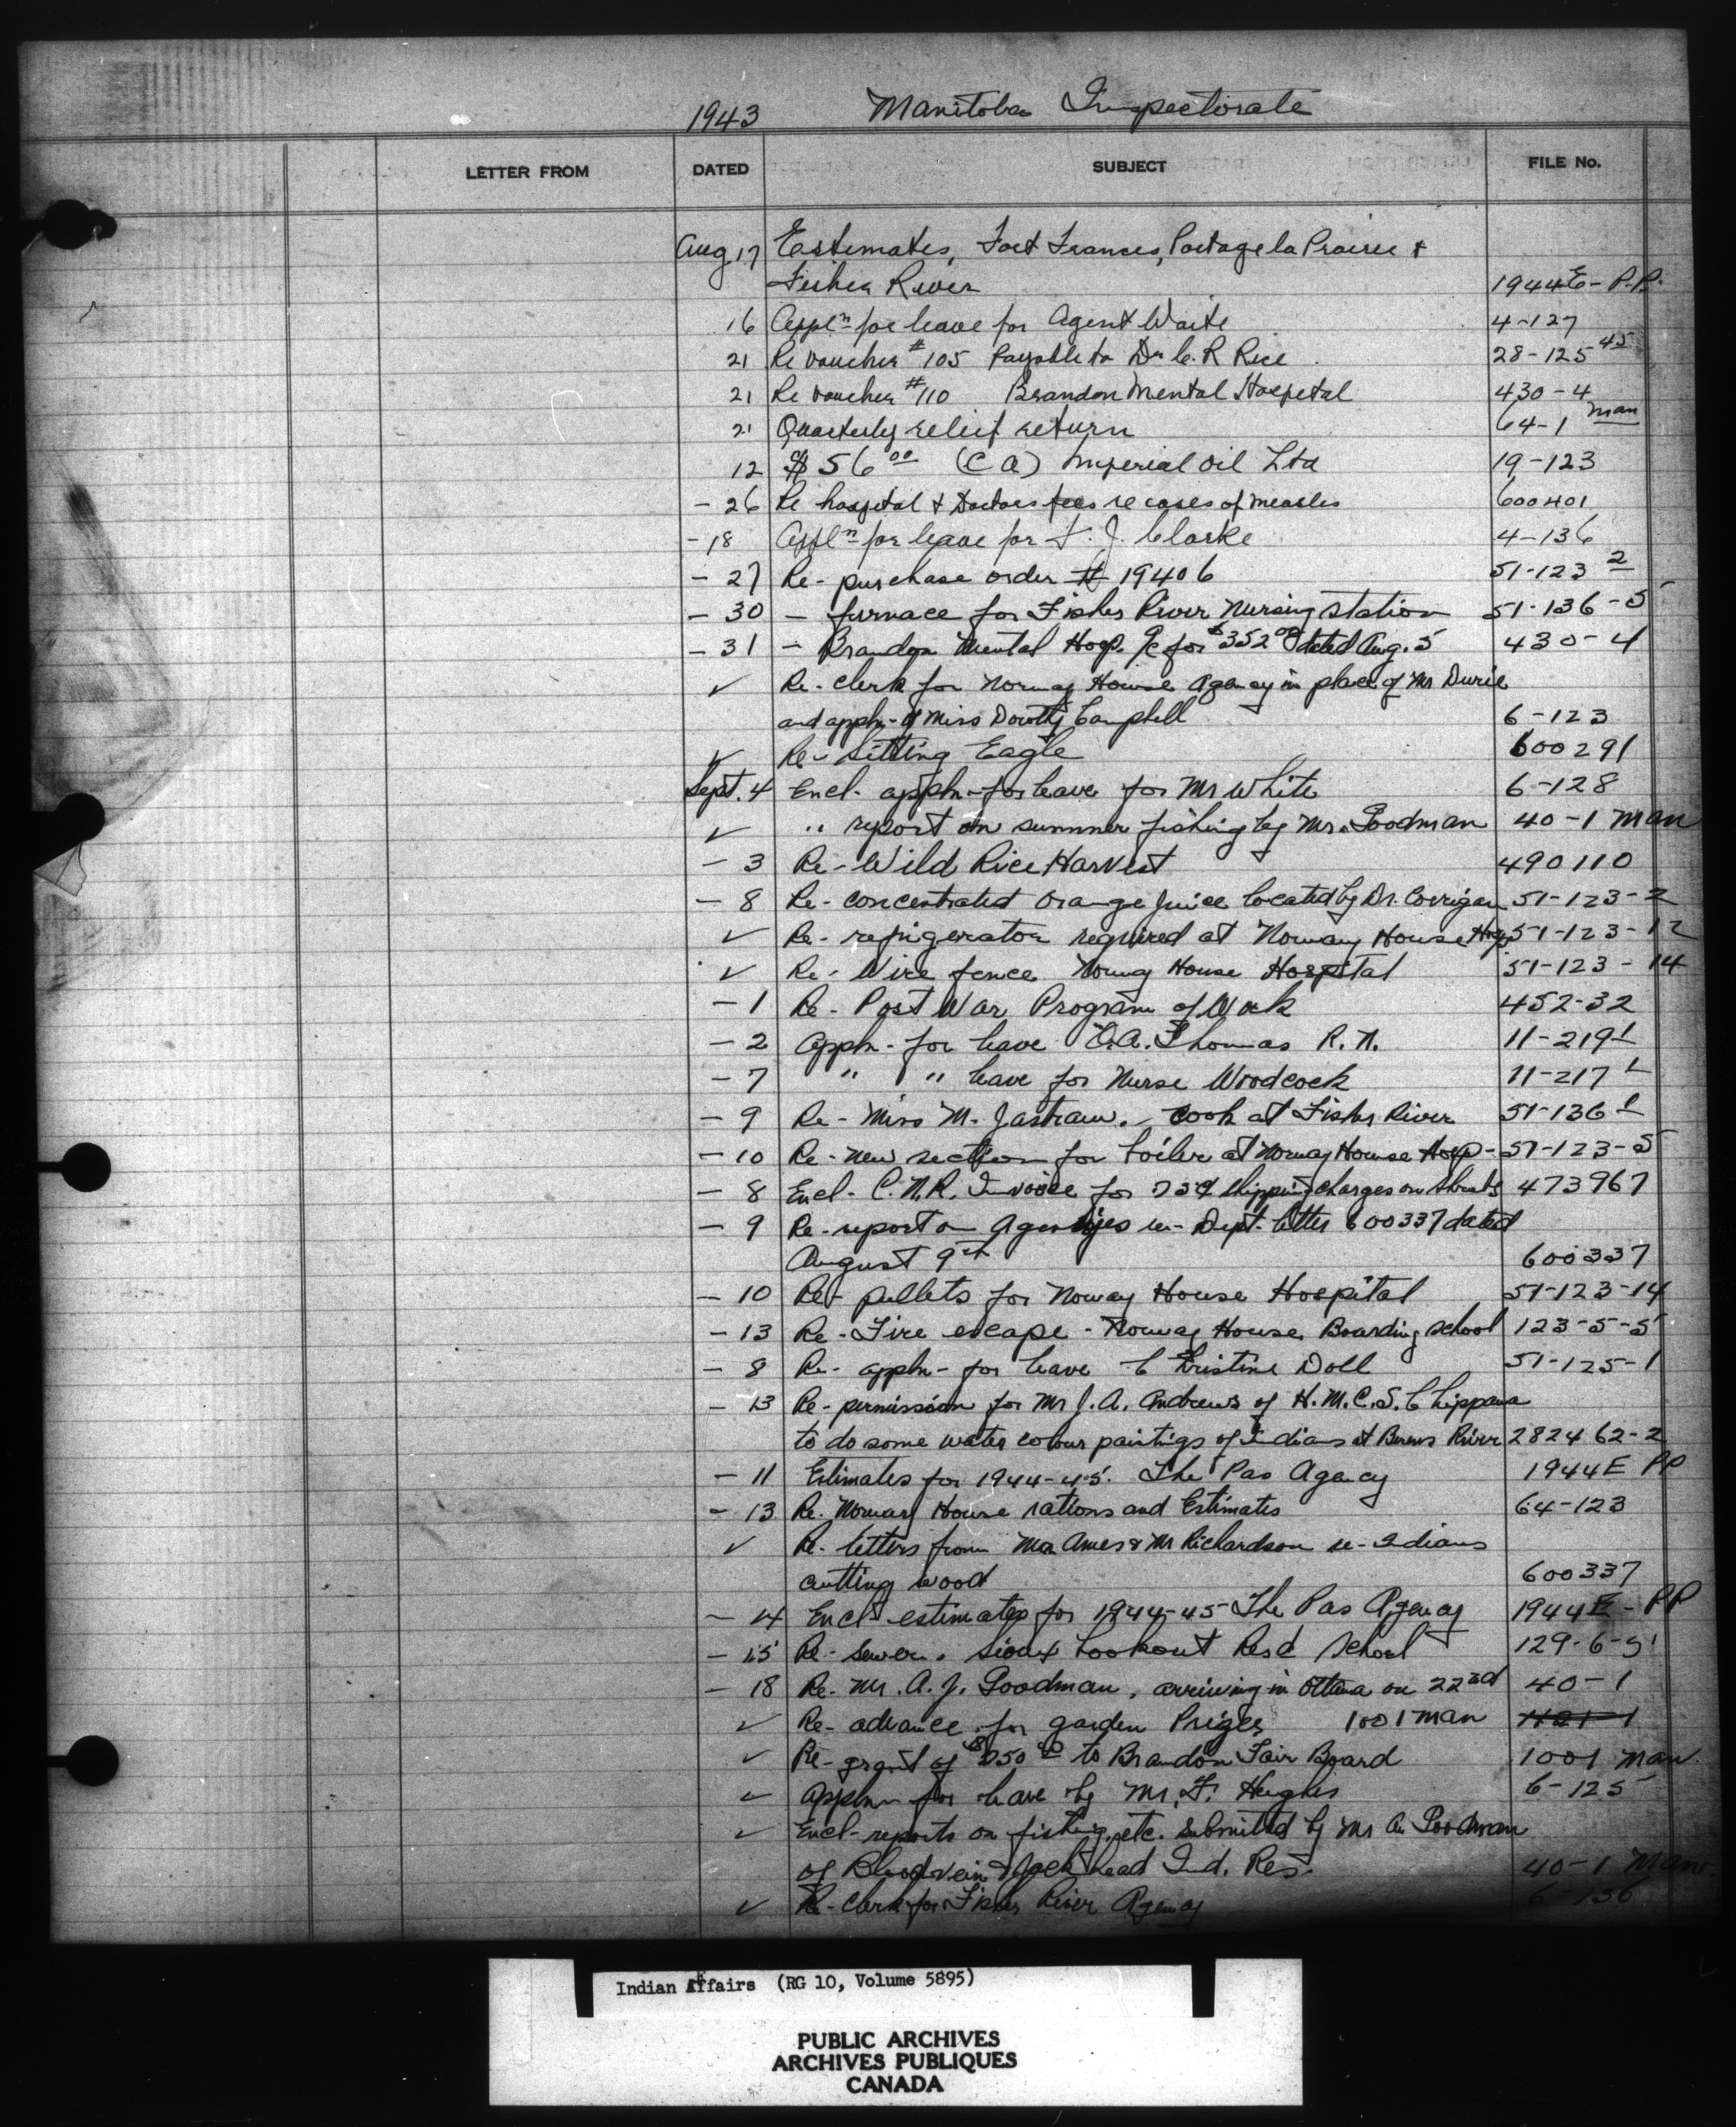 1943 Manitoba Inspectorate
LETTER FROM DATED SUBJECT FILE No.
Aug 17 Estimates, Fort Frances, Portage la Prairie &
Fisher River 1944E - P.P.
16 Appln for leave for Agent Waite 4-127
21 Re voucher # 105 Payable to Dr C. R Rice 28-125 45
21 Re voucher # 110 Brandon Mental Hospital 430-4
21 Quarterly relief return 64-1 Man
12 $56 00 (CA) Imperial Oil Ltd 19-123
- 26 Re hospital & Doctors fees re cases of measles 600401
- 18 Appln for leave for F. J. Clarke 4-136
- 27 Re- purchase order # 19406 51-123 2
- 30 - furnace for Fisher River Nursing Station 51-136-5
- 31 - Brandon Mental Hosp. a/c for $352 00 dated Aug. 5 430-4
✓ Re- Clerk for Norway House Agency in place of Mr Durie
and appln- of Miss Dorothy Campbell 6-123
✓ Re- Sitting Eagle 600291
Sept. 4 Encl- appln- for leave for Mr White 6-128
✓ " report on summer fishing by Mr. Goodman 40-1 Man
- 3 Re- Wild Rice Harvest 490110
- 8 Re- concentrated Orange Juice located by Dr. Corrigan 51-123-2
✓ Re- refrigerator required at Norway House Hosp 51-123-12
✓ Re- Wire fence Norway House Hospital 51-123-14
- 1 Re- Post War Program of Work 452-32
- 2 Appln- for leave O.A. Thomas R.N. 11-219-1
- 7 " " leave for Nurse Woodcock 11-217 1
- 9 Re- Miss M. Jastraw. Cook at Fisher River 51-136 1
- 10 Re- new section for boiler at Norway House Hosp- 51-123-5
- 8 Encl- C.N.R. Invoice for 75¢ shipping charges on 473967
- 9 Re- report on Agencies re- Dept. letter 600337 dated
August 9th 600337
- 10 Re- pellets for Norway House Hospital 51-123-14
- 13 Re- Fire escape - Norway House Boarding School 123-5-5
- 8 Re- appln- for leave Christine Doll 51-125-1
- 13 Re- permission for Mr J. A. Andrews of H.M.C.S. Chippawa
to do some water colour paintings of Indians at Berens River 282462-2
- 11 Estimates for 1944-45. The Pas Agency 1944E PP
- 13 Re. Norway House rations and Estimates 64-123
✓ Re- letters from Mr Ames & Mr Richardson re- Indians
cutting wood 600337
- 14 Encl- estimates for 1944-45 The Pas Agency 1944E - PP
- 15 Re- Sewer. Sioux Lookout Resd School 129-6-5
- 18 Re- Mr. A. J. Goodman, arriving in Ottawa on 22nd 40-1
✓ Re- advance for garden Prizes 1001 Man
✓ Re- grant of $250 00 to Brandon Fair Board 1001 Man
✓ Appln- for leave by Mr. F. Hughes 6-125
✓ Encl- reports on fishing, etc. submitted by Mr A. Goodman
of Bloodvein & Jackhead Ind. Res. 40-1 Man.
✓ Re- Clerk for Fisher River Agency 6-136
Indian Affairs (RG 10, Volume 5895)
PUBLIC ARCHIVES
ARCHIVES PUBLIQUES
CANADA